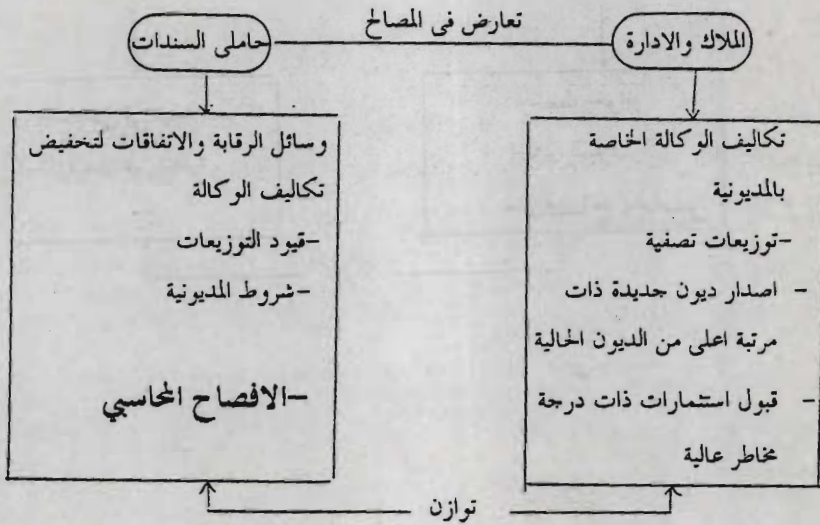 تعارض فى المصالح
الملاك والادارة
حاملى السندات
تكاليف الوكالة الخاصة
بالمديونية
-توزيعات تصفية
- اصدار ديون جديدة ذات
مرتبة اعلى من الديون الحالية
- قبول استثمارات ذات درجة
مخاطر عالية
وسائل الرقابة والاتفاقات لتخفيض
تكاليف الوكالة
-قيود التوزيعات
-شروط المديونية
-الافصاح المحاسبي
توازن